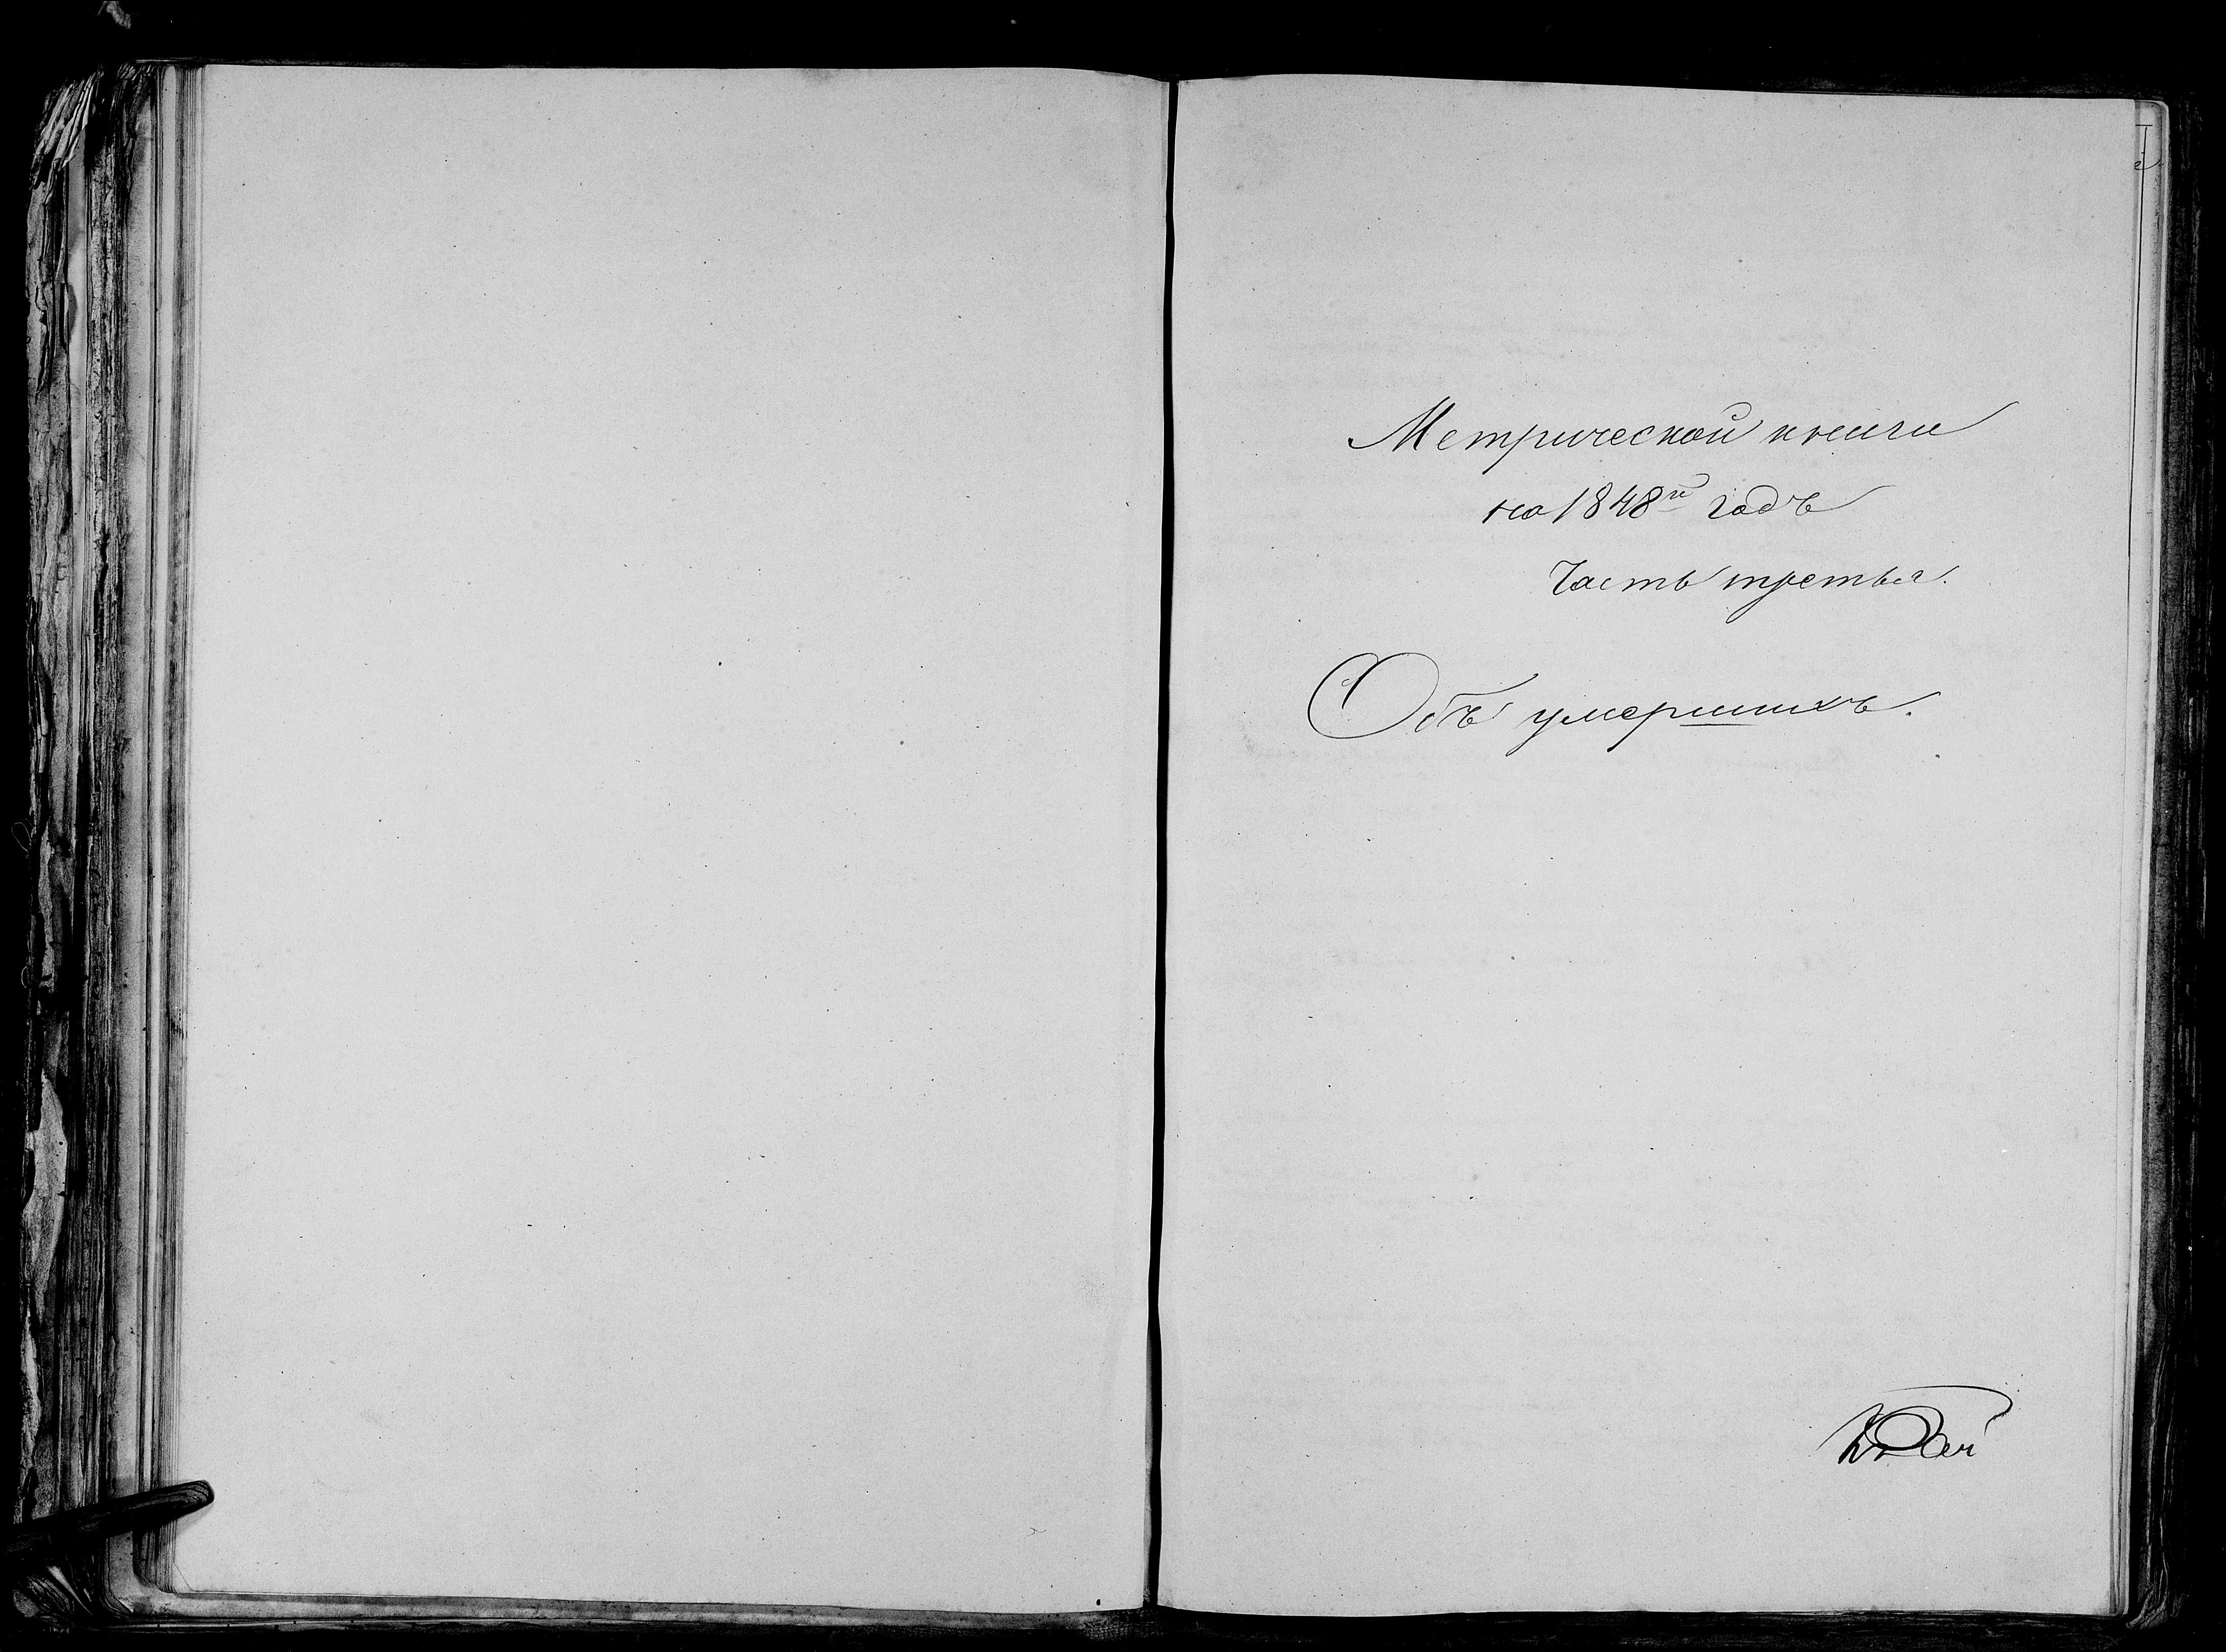 Метрической книги
на 1848й годъ
Часть третья.
Объ умершихъ.